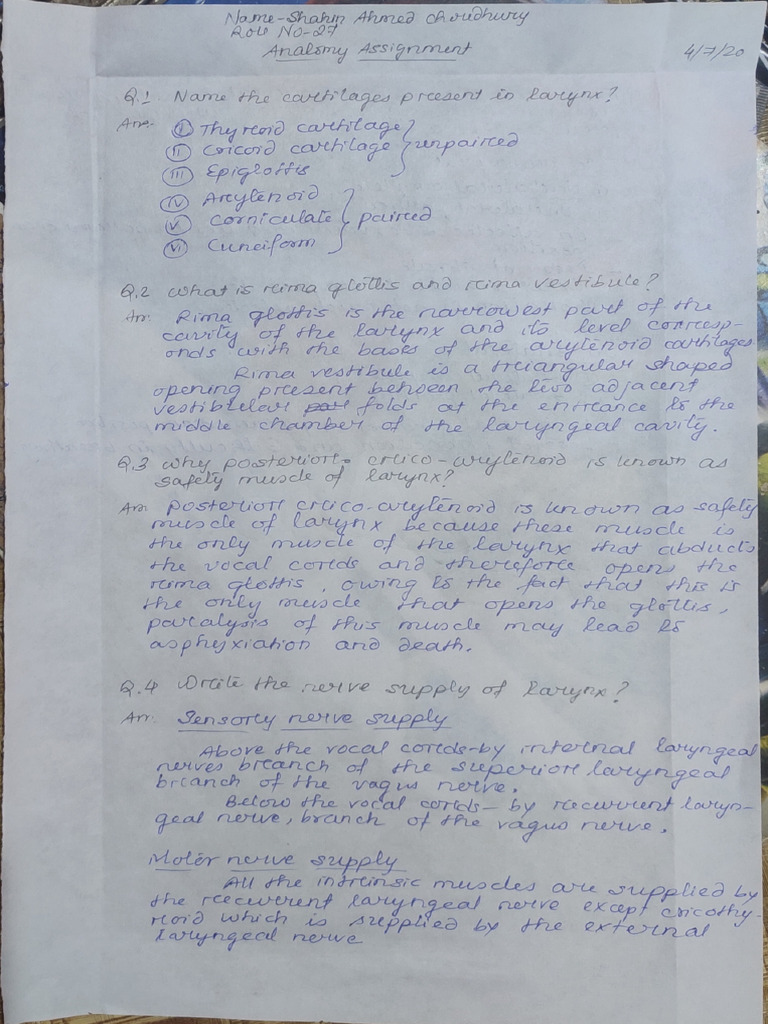 Name-Shahin Ahmed Choudhury
Roll No-27
Anatomy Assignment
4/7/20
Q.1 Name the cartilages present in larynx?
Ans.
I Thyroid cartilage
II Cricoid cartilage } unpaired
III Epiglottis
IV Arytenoid
V Corniculate } paired
VI Cuneiform
Q.2 What is rima glottis and rima vestibule?
An: Rima glottis is the narrowest part of the
cavity of the larynx and its level corresp-
onds with the bases of the arytenoid cartilages
Rima vestibule is a triangular shaped
opening present between the two adjacent
vestibular folds at the entrance to the
middle chamber of the laryngeal cavity.
Q.3 Why posterior crico-arytenoid is known as
safety muscle of larynx?
An: Posterior crico-arytenoid is known as safety
muscle of larynx because these muscle is
the only muscle of the larynx that abducts
the vocal cords and therefore opens the
rima glottis, owing to the fact that this is
the only muscle that opens the glottis,
paralysis of this muscle may lead to
asphyxiation and death.
Q.4 Write the nerve supply of larynx?
An: Sensory nerve supply
Above the vocal cords-by internal laryngeal
nerves branch of the superior laryngeal
branch of the vagus nerve.
Below the vocal cords- by recurrent laryn-
geal nerve, branch of the vagus nerve.
Motor nerve supply
All the intrinsic muscles are supplied by
the recurrent laryngeal nerve except cricothy-
roid which is supplied by the external
laryngeal nerve